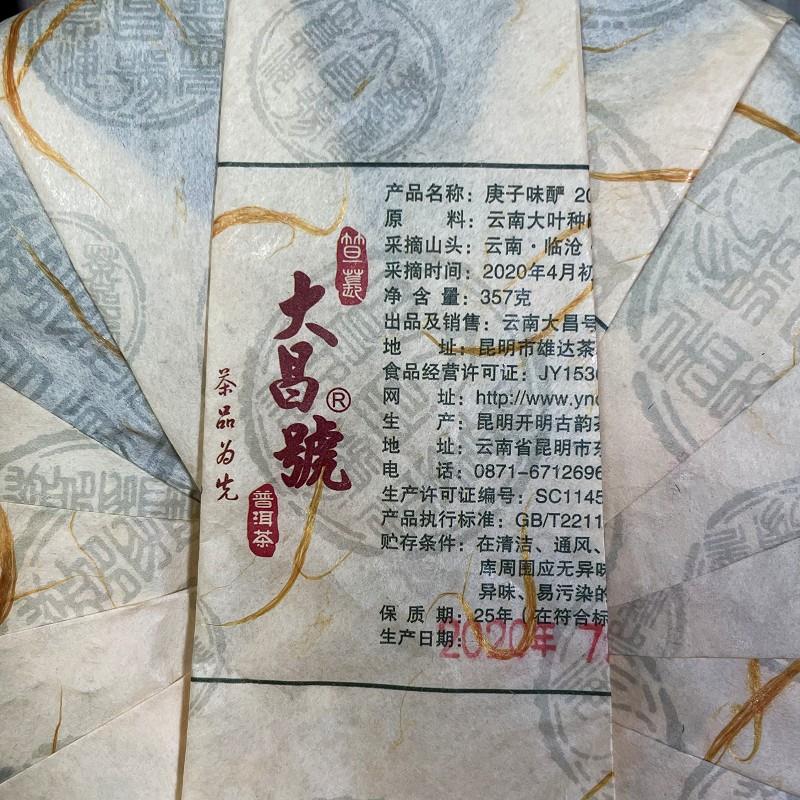 大昌號®
茶品为先
普洱茶
产品名称：庚子味酽 20
原 料：云南大叶种
采摘山头：云南·临沧
采摘时间：2020年4月初
净 含 量：357克
出品及销售：云南大昌号
地 址：昆明市雄达茶
食品经营许可证：JY1530
网 址：http://www.ync
生 产：昆明开明古韵茶
地 址：云南省昆明市东
电 话：0871-6712696
生产许可证编号：SC1145
产品执行标准：GB/T2211
贮存条件：在清洁、通风、
库周围应无异味
异味、易污染的
保 质 期：25年（在符合标
生产日期：2020年 7